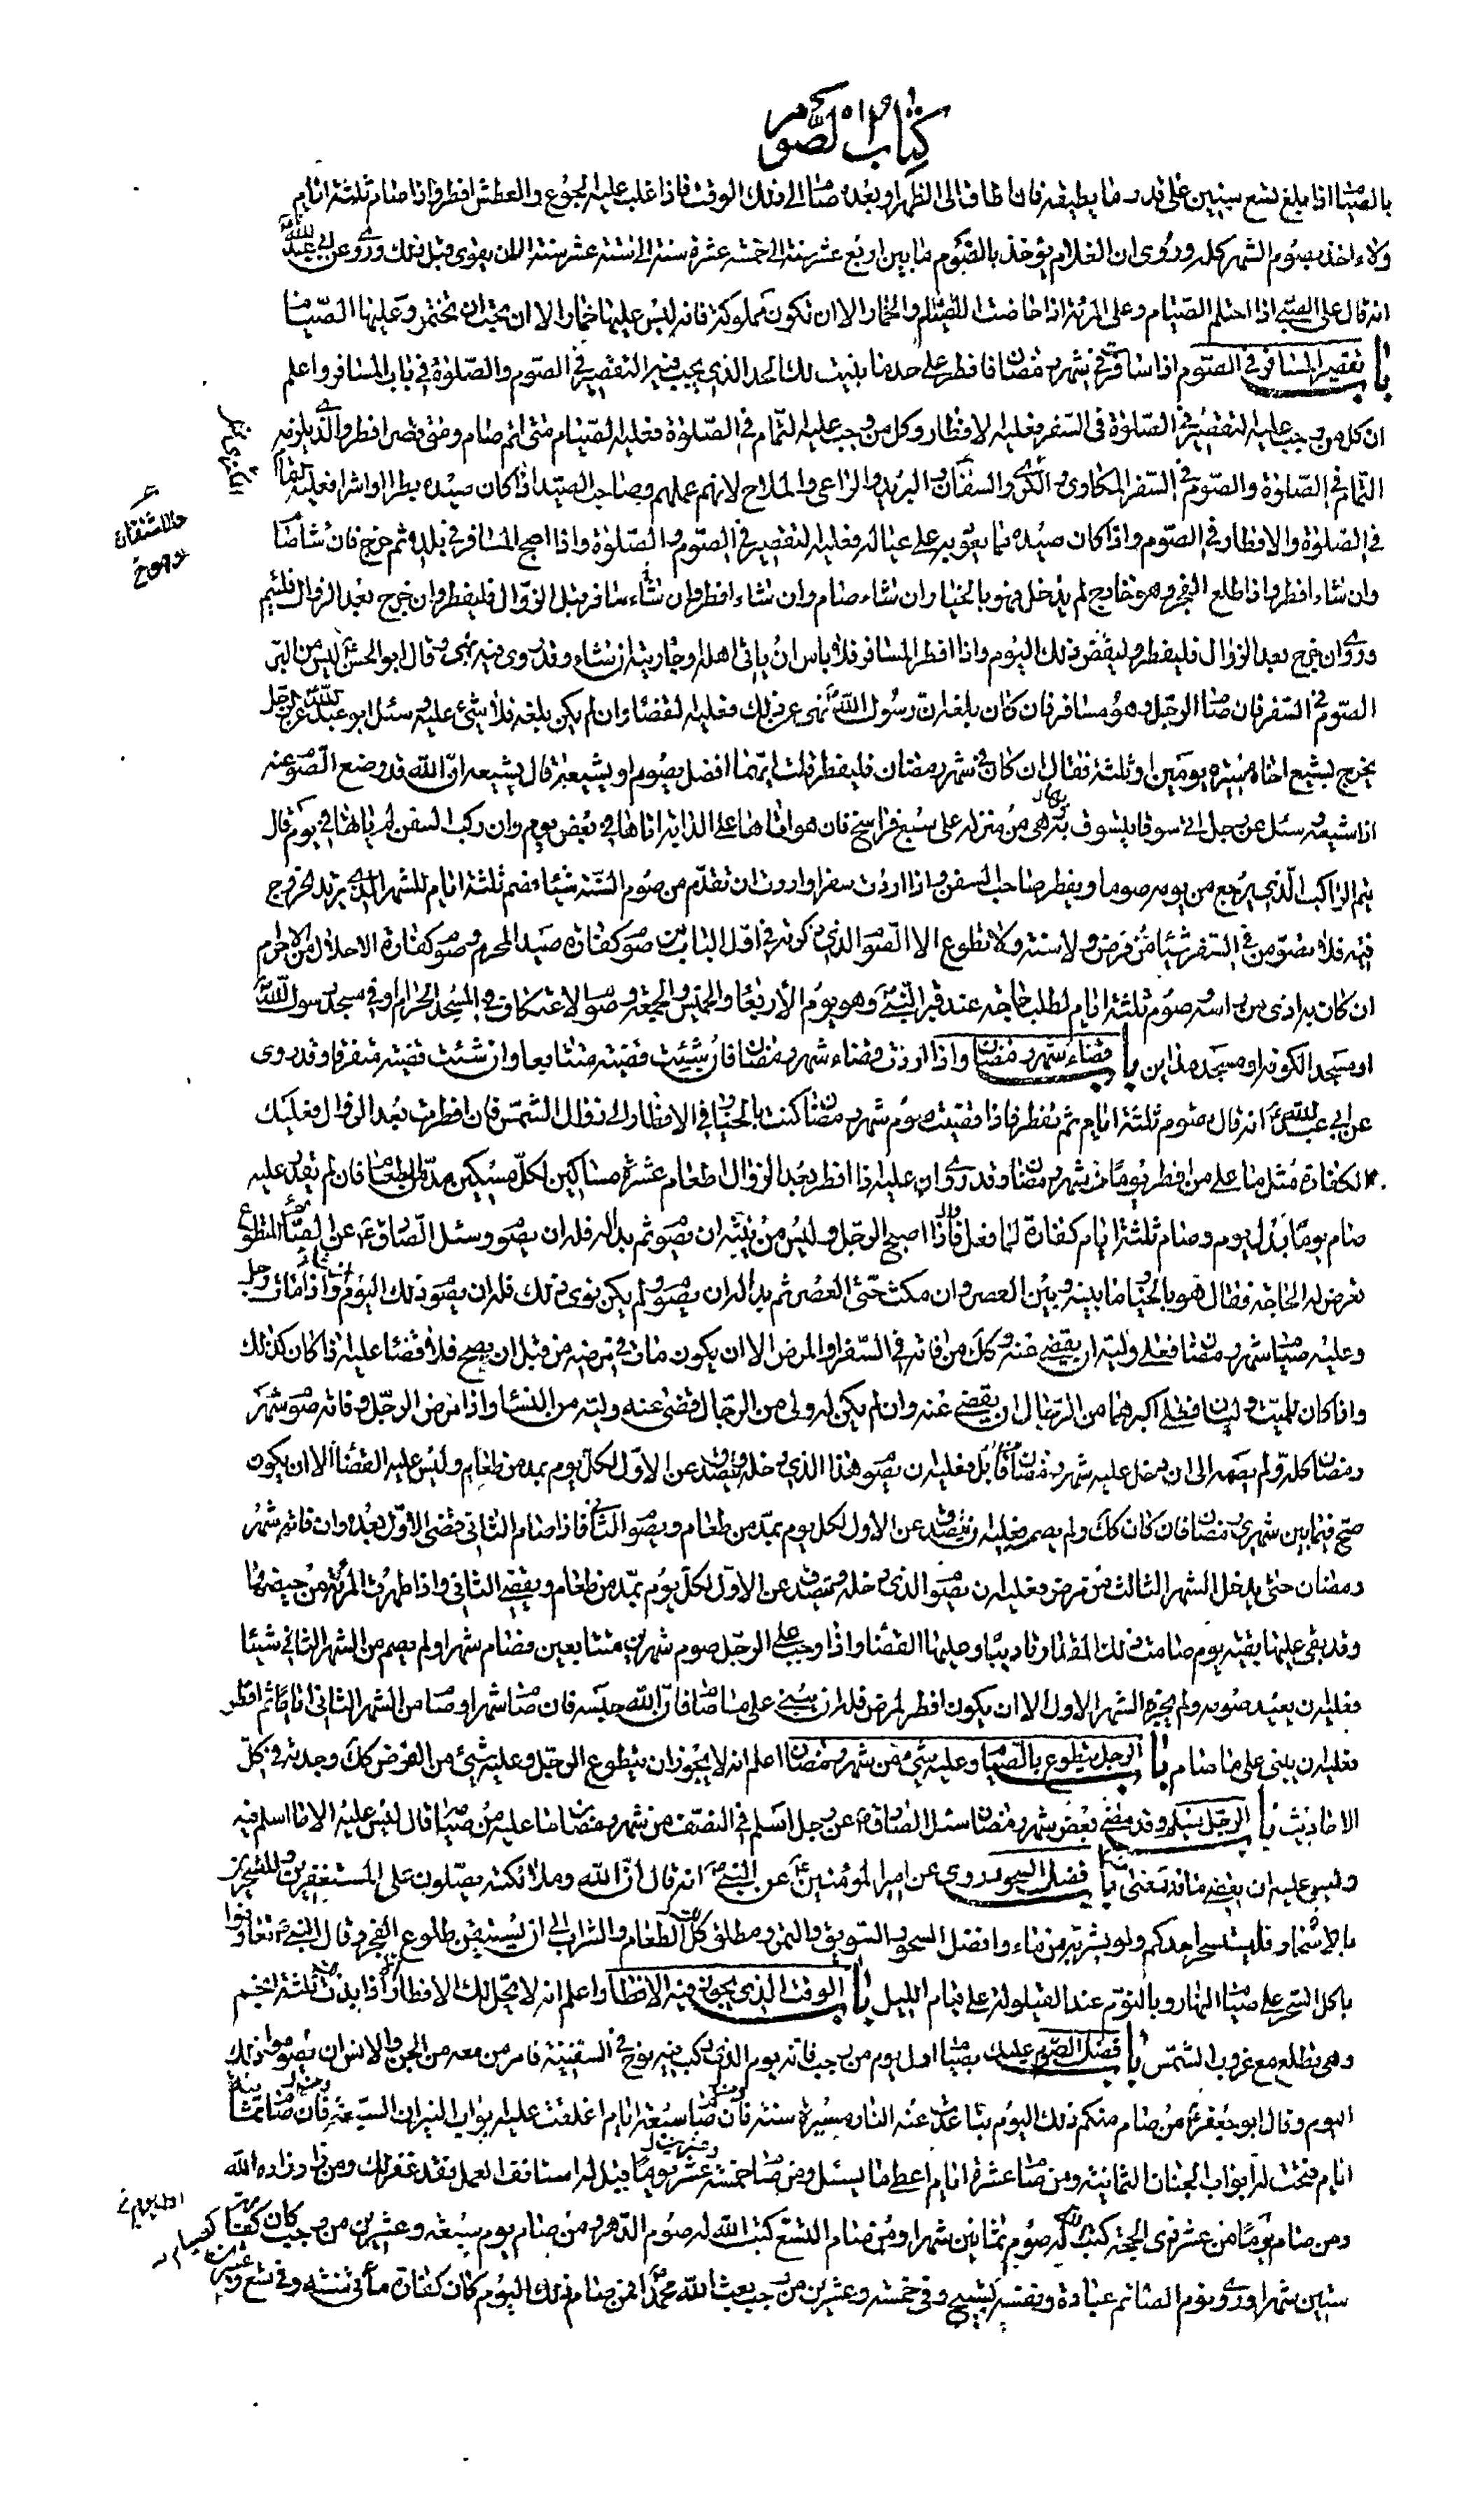 كتاب الصوم
بالصيام اذا بلغ تسع سنين على قدر ما يطيقه فان اطاق الى الظهر او بعده صام الى ذلك الوقت فاذا غلب عليه الجوع والعطش افطر واذا صام ثلثة ايام
ولاء اخذ بصوم الشهر كله وروى ان الغلام يؤخذ بالصوم ما بين اربع عشر سنة الى خمسة عشرة سنة الى ستة عشر سنة الا ان يقوى قبل ذلك وروى عن ابي عبد الله
انه قال على الصبي اذا احتلم الصيام وعلى المرئة اذا حاضت الصيام والخمار الا ان تكون مملوكة فانه ليس عليها خمار الا ان يحب ان تختمر وعليها الصيام
باب تقصير المسافر في الصوم اذا سافرت في شهر رمضان فافطر على حد ما بينت لك الحد الذي يجب فيه التقصير في الصوم والصلوة في باب المسافر واعلم
ان كل من وجب عليه التقصير في الصلوة في السفر فعليه الافطار وكل من وجب عليه التمام في الصلوة فعليه الصيام متى اتم صام ومتى قصر افطر والذي يلزمه
التمام في الصلوة والصوم في السفر المكاري والكرى والسفان والبريد والراعي والملاح لانهم عملهم وصاحب الصيد اذا كان صيده بطرا او اشرا فعليه التمام
في الصلوة والافطار في الصوم واذا كان صيده مما يعود به على عياله فعليه التقصير في الصوم والصلوة واذا اصبح المسافر في بلده ثم خرج فان شاء صام
وان شاء افطر واذا طلع الفجر وهو خارج لم يدخل فهو بالخيار ان شاء صام وان شاء افطر وان شاء سافر قبل الزوال فليفطر وان خرج بعد الزوال فليتم
وروى ان خرج بعد الزوال فليفطر وليقض ذلك اليوم واذا افطر المسافر فلا باس ان ياتى اهله او جاريته ان شاء وقد روى فيه نهى وقال ابو الحسن ليس من البر
الصوم في السفر فان صام الرجل وهو مسافر فان كان بلغه ان رسول الله نهى عن ذلك فعليه القضاء وان لم يكن بلغه فلا شئ عليه وسئل ابو عبد الله عن رجل
يخرج يشيع اخاه مسيرة يومين او ثلثة فقال ان كان في شهر رمضان فليفطر قلت ايهما افضل يصوم او يشيعه قال يشيعه ان الله قد وضع الصوم عنه
اذا شيعه سئل عن رجل اتى سوقا يتسوق بها وهي من منزله على سبع فراسخ فان هو اتاها على الدابة اتاها في بعض يوم وان ركب السفن لم ياتها في يوم قال
يتم الراكب الذي يرجع من يومه صوما ويفطر صاحب السفن واذا اردت سفرا واردت ان تقدم من صوم السنة شيئا فصم ثلثة ايام للشهر الذي تريد الخروج
فيه فلا تصومن في السفر شيئا من فرض ولا سنة ولا تطوع الا الصوم الذي ذكرته في اول الباب من صوم كفارة صيد المحرم وصوم كفارة الاحلال من الاحرام
ان كان به اذى من راسه وصوم ثلثة ايام لطلب حاجة عند قبر النبي وهو يوم الاربعاء والخميس والجمعة وصوم الاعتكاف في المسجد الحرام او في مسجد رسول الله
او مسجد الكوفة او مسجد مداين باب قضاء شهر رمضان واذا اردت قضاء شهر رمضان فان شئت قضيته متتابعا وان شئت قضيته متفرقا وقد روى
عن ابي عبد الله انه قال صوم ثلثة ايام ثم تفطر فاذا قضيت صوم شهر رمضان كنت بالخيار في الافطار الى زوال الشمس فان افطرت بعد الزوال فعليك
الكفارة مثل ما على من افطر يوما من شهر رمضان وقد روى ان عليه اذا افطر بعد الزوال اطعام عشرة مساكين لكل مسكين مد من طعام فان لم يقدر عليه
صام يوما بدل يوم وصام ثلثة ايام كفارة لما فعل واذا اصبح الرجل وليس من نيته ان يصوم ثم بدا له فله ان يصوم وسئل الصادق عن الصائم المتطوع
تعرض له الحاجة فقال هو بالخيار ما بينه وبين العصر وان مكث حتى العصر ثم بدا له ان يصوم ولم يكن نوى ذلك فله ان يصوم ذلك اليوم ان شاء واذا مات رجل
وعليه صيام شهر رمضان فعلى وليه ان يقضى عنه وكل من فاته في السفر او المرض الا ان يكون مات في مرضه من قبل ان يصح فلا قضاء عليه اذا كان كذلك
واذا كان للميت وليان فعلى اكبرهما من الرجال ان يقضى عنه وان لم يكن له ولى من الرجال قضى عنه وليه من النساء واذا مرض الرجل وفاته صوم شهر
رمضان كله ولم يصمه الى ان دخل عليه شهر رمضان قابل فعليه ان يصوم هذا الذي دخله ويتصدق عن الاول لكل يوم بمد من طعام وليس عليه القضاء الا ان يكون
صح فيما بين شهرى رمضان فان كان كك ولم يصم فعليه ان يتصدق عن الاول لكل يوم بمد من طعام ويصوم الثاني فاذا صام الثاني قضى الاول بعده وان فاته شهر
رمضان حتى يدخل الشهر الثالث من مرض فعليه ان يصوم الذي دخله ويتصدق عن الاول لكل يوم بمد من طعام ويقضى الثاني واذا طهرت المرئة من حيضها
وقد بقى عليها بقية يوم صامت ذلك المقدار تاديبا وعليها القضاء واذا وجب على الرجل صوم شهرين متتابعين فصام شهرا ولم يصم من الشهر الثاني شيئا
فعليه ان يعيد صومه ولم يجزه الشهر الاول الا ان يكون افطر لمرض فله ان يبنى على ما صام فان الله حبسه فان صام شهرا وصام من الشهر الثاني اياما ثم افطر
فعليه ان يبنى على ما صام باب الرجل يتطوع بالصيام وعليه شئ من شهر رمضان اعلم انه لا يجوز ان يتطوع الرجل وعليه شئ من الفرض كك وجدته في كل
الاحاديث باب الرجل يسلم وقد مضى بعض شهر رمضان سئل الصادق عن رجل اسلم في النصف من شهر رمضان ما عليه من صيامه قال ليس عليه الا ما اسلم فيه
وليس عليه ان يقضى ما قد مضى باب فضل السحور روى عن امير المؤمنين عن النبي انه قال ان الله وملائكته يصلون على المستغفرين والمتسحرين
بالاسحار فليتسحر احدكم ولو بشربة من ماء وافضل السحور السويق والتمر ومطلق لك الطعام والشراب الى ان يستيقن طلوع الفجر وقال النبي تعاونوا
باكل السحر على صيام النهار وبالنوم عند القيلولة على قيام الليل باب الوقت الذي يجوز فيه الافطار واعلم انه لا يحل لك الافطار الا اذا بدت ثلثة انجم
وهي تطلع مع غروب الشمس باب فضل الصوم عليك بصيام اول يوم من رجب فانه يوم الذي ركب فيه نوح في السفينة فامر من معه من الجن والانس ان يصوموا ذلك
اليوم وقال ابو جعفر من صام منكم ذلك اليوم تباعدت عنه النار مسيرة سنة فان صام سبعة ايام اغلقت عليه ابواب النيران السبعة فان صام ثمانية
ايام فتحت له ابواب الجنان الثمانية ومن صام عشرة ايام اعطى ما يسئل ومن صام خمسة عشر يوما قيل له استانف العمل فقد غفر لك ومن زاد زاده الله
ومن صام يوما من عشر ذى الحجة كتب الله له صوم ثمانين شهرا ومن صام التسع كتب الله له صوم الدهر ومن صام يوم سبعة وعشرين من رجب كان كفارة
ستين شهرا وروى نوم الصائم عبادة ونفسه تسبيح وفى خمسة وعشرين من رجب بعث الله محمدا فمن صام ذلك اليوم كان كفارة مأتى سنة وفى تسع وعشرين